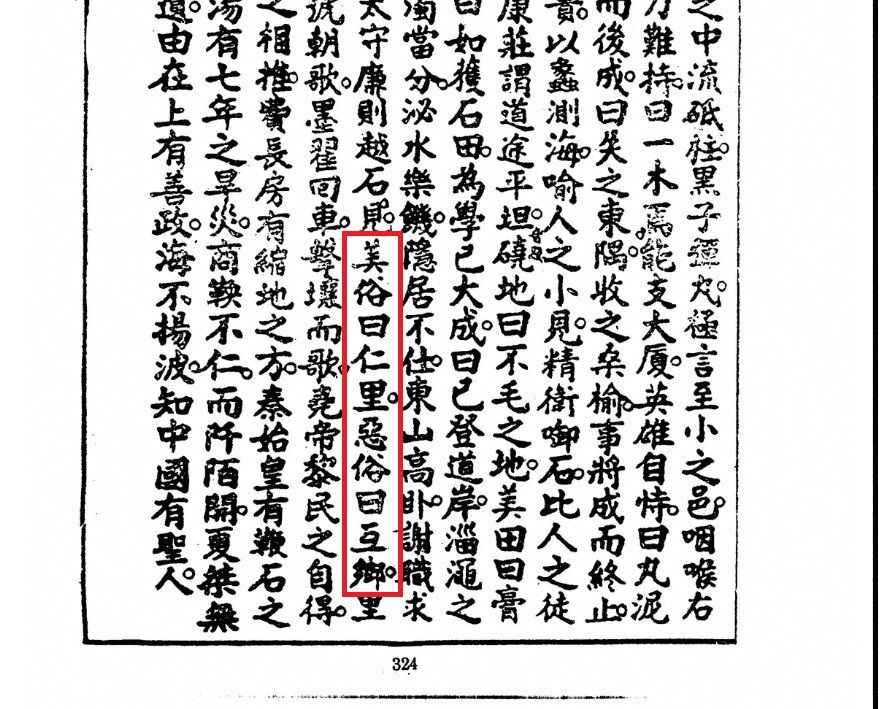 之中流砥柱。黑子彈丸。極言至小之邑。咽喉右
力難持。曰一木焉能支大厦。英雄自恃。曰丸泥
而後成。曰失之東隅。收之桑榆。事將成而終止。
以蠡測海。喻人之小見。精衛啣石。比人之徒
康莊謂道途平坦。磽地曰不毛之地。美田曰膏
曰如獲石田。為學已大成。曰已登道岸。淄澠之
濁當分。泌水樂饑。隱居不仕。東山高卧。謝職求
太守廉則越石見。美俗曰仁里。惡俗曰互鄉。里
號朝歌。墨翟回車。擊壤而歌。堯帝黎民之自得。
之相推。費長房有縮地之方。秦始皇有鞭石之
湯有七年之旱災。商鞅不仁。而阡陌開。夏桀無
遺。由在上有善政。海不揚波。知中國有聖人。
324